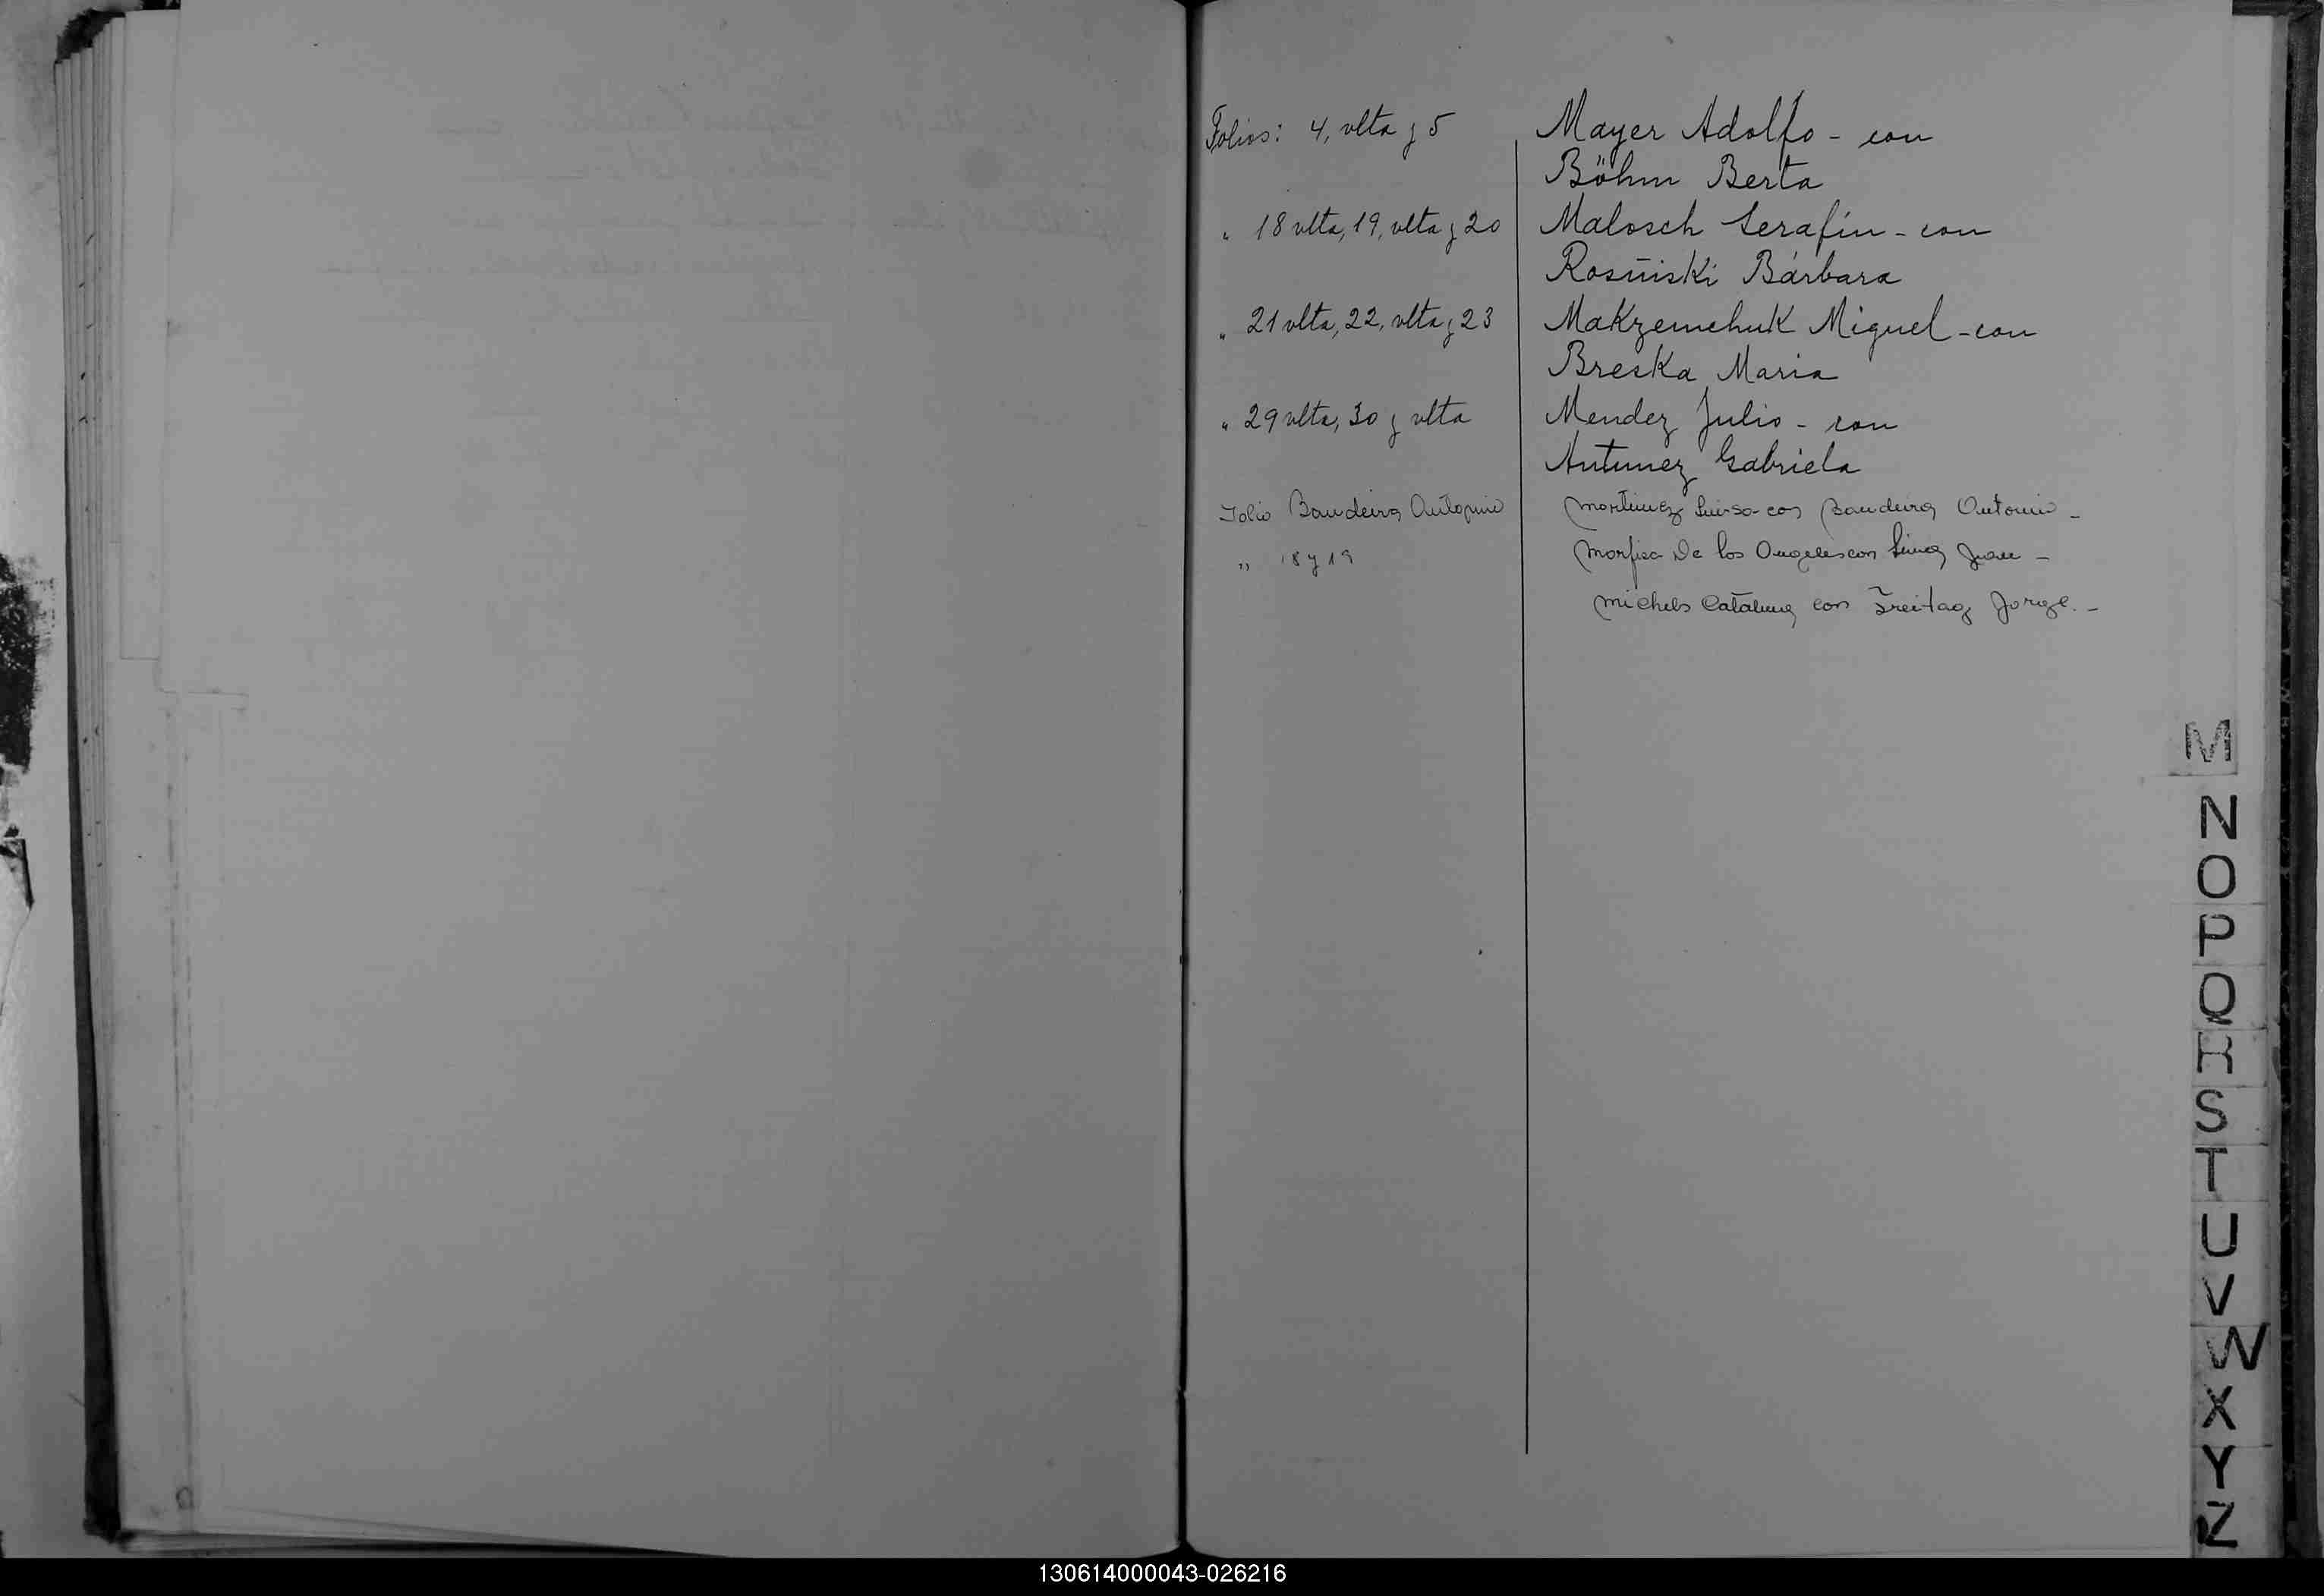 Folios: 4, vlta y 5 Mayer Adolfo - con
Böhm Berta
" 18 vlta, 19, vlta y 20 Malosch Serafín - con
Rosūiski Bárbara
" 21 vlta, 22, vlta y 23 Makzemchuk Miguel - con
Breska Maria
" 29 vlta, 30 y vlta Mendez Julio - con
Antunez Gabriela
Folio Bandeira Antonio Martinez Luisa con Bandeira Antonio -
" 18 y 19 De los Angeles con Juan -
Michels Catalina con Freitag Jorge. -
M
N
O
P
Q
R
S
T
U
V
W
X
Y
Z
130614000043-026216